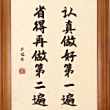 认真做好第一遍
省得再做第二遍